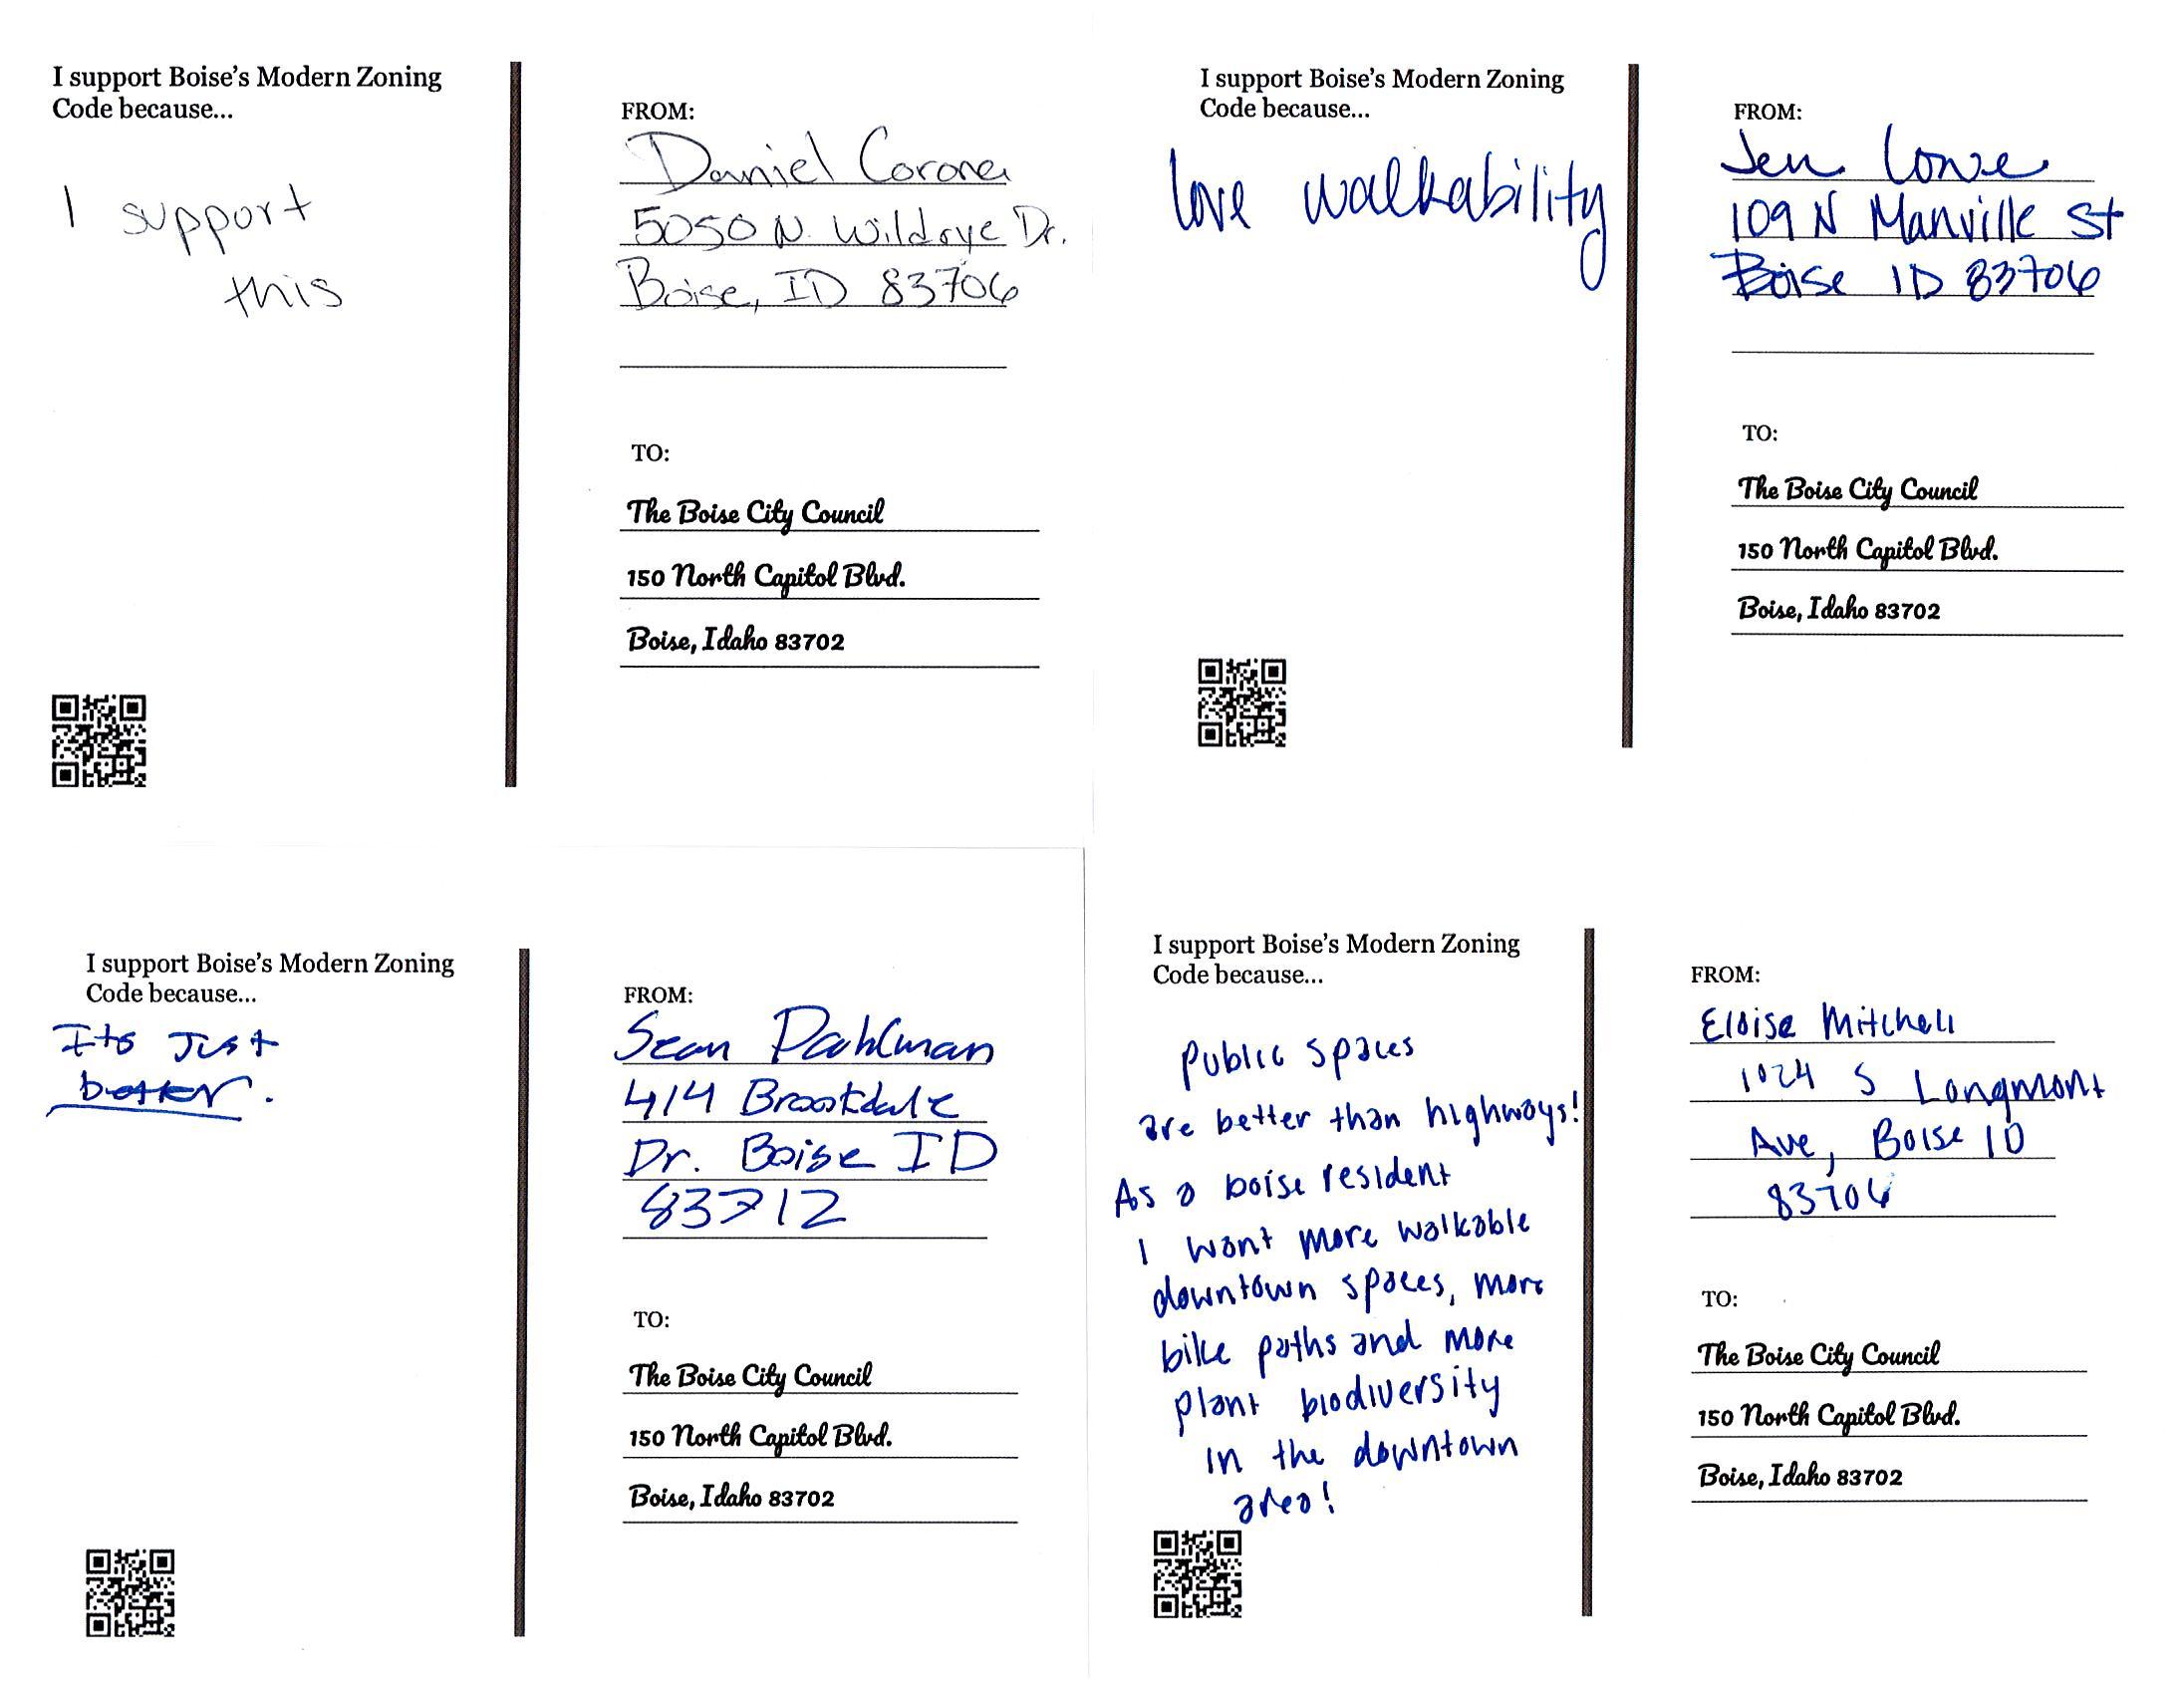 I support Boise's Modern Zoning
Code because...
I support
this
FROM:
Daniel Corona
5050 N. Wildrye Dr.
Boise, ID 83706
TO:
The Boise City Council
150 North Capitol Blvd.
Boise, Idaho 83702
I support Boise's Modern Zoning
Code because...
love walkability
FROM:
Jen Lowe
109 N Manville St
Boise ID 83706
TO:
The Boise City Council
150 North Capitol Blvd.
Boise, Idaho 83702
I support Boise's Modern Zoning
Code because...
Its Just
better.
FROM:
Sean Dahlman
414 Brookdale
Dr. Boise ID
83712
TO:
The Boise City Council
150 North Capitol Blvd.
Boise, Idaho 83702
I support Boise's Modern Zoning
Code because...
Public spaces
are better than highways!
As a boise resident
I want more walkable
downtown spaces, more
bike paths and more
plant biodiversity
in the downtown
area!
FROM:
Eloise Mitchell
1024 S Longmont
Ave, Boise ID
83706
TO:
The Boise City Council
150 North Capitol Blvd.
Boise, Idaho 83702